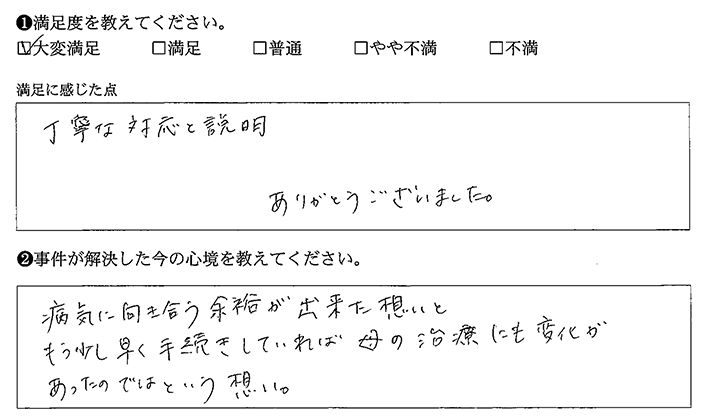 ❶満足度を教えてください。
☑大変満足 □満足 □普通 □やや不満 □不満
満足に感じた点
丁寧な対応と説明
ありがとうございました。
❷事件が解決した今の心境を教えてください。
病気に向き合う余裕が出来た想いと
もう少し早く手続きしていれば母の治療にも変化が
あったのではという想い。